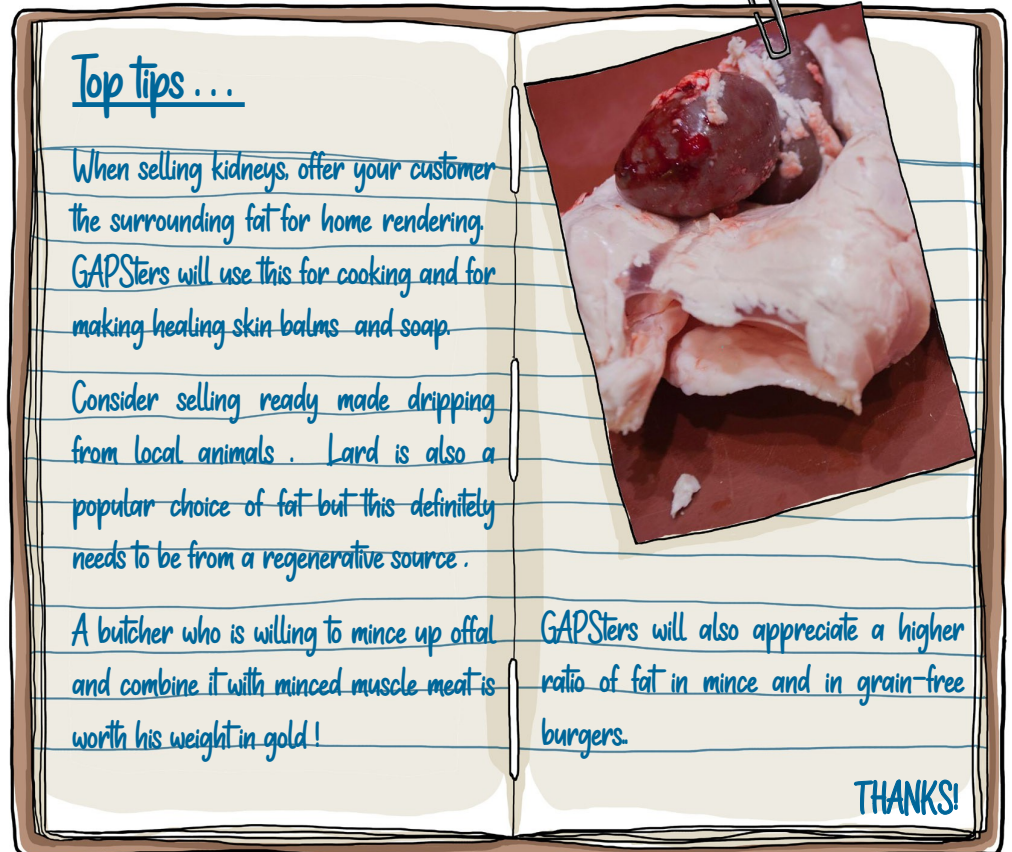 Top tips . . .
When selling kidneys, offer your customer
the surrounding fat for home rendering.
GAPSters will use this for cooking and for
making healing skin balms and soap.
Consider selling ready made dripping
from local animals . Lard is also a
popular choice of fat but this definitely
needs to be from a regenerative source .
A butcher who is willing to mince up offal
and combine it with minced muscle meat is
worth his weight in gold !
GAPSters will also appreciate a higher
ratio of fat in mince and in grain-free
burgers..
THANKS!